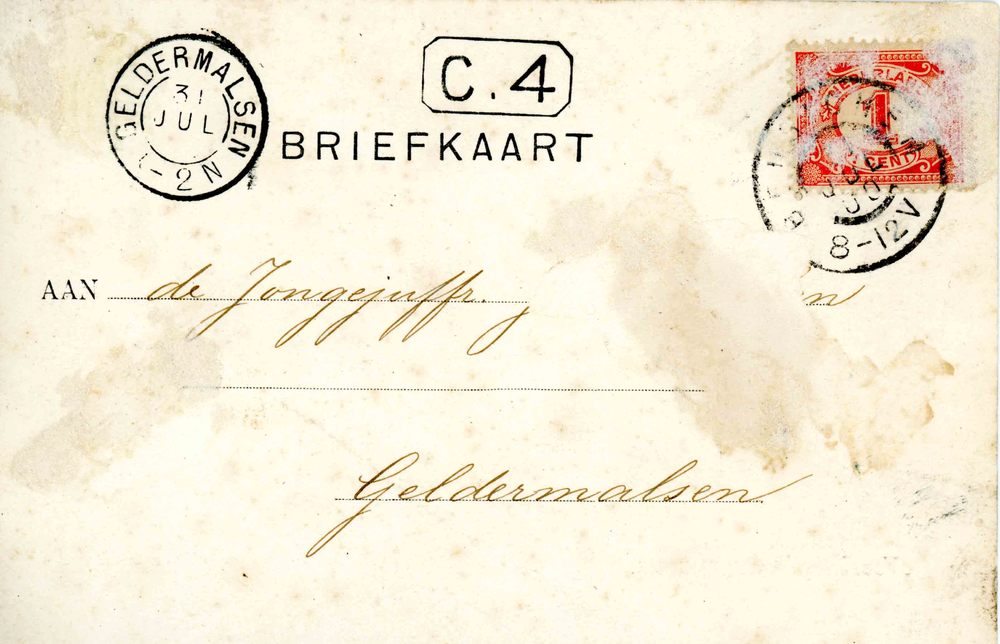 GELDERMALSEN
31
JUL
1-2N
C.4
BRIEFKAART
1
CENT
8-12V
AAN de Jongejuffr.
Geldermalsen